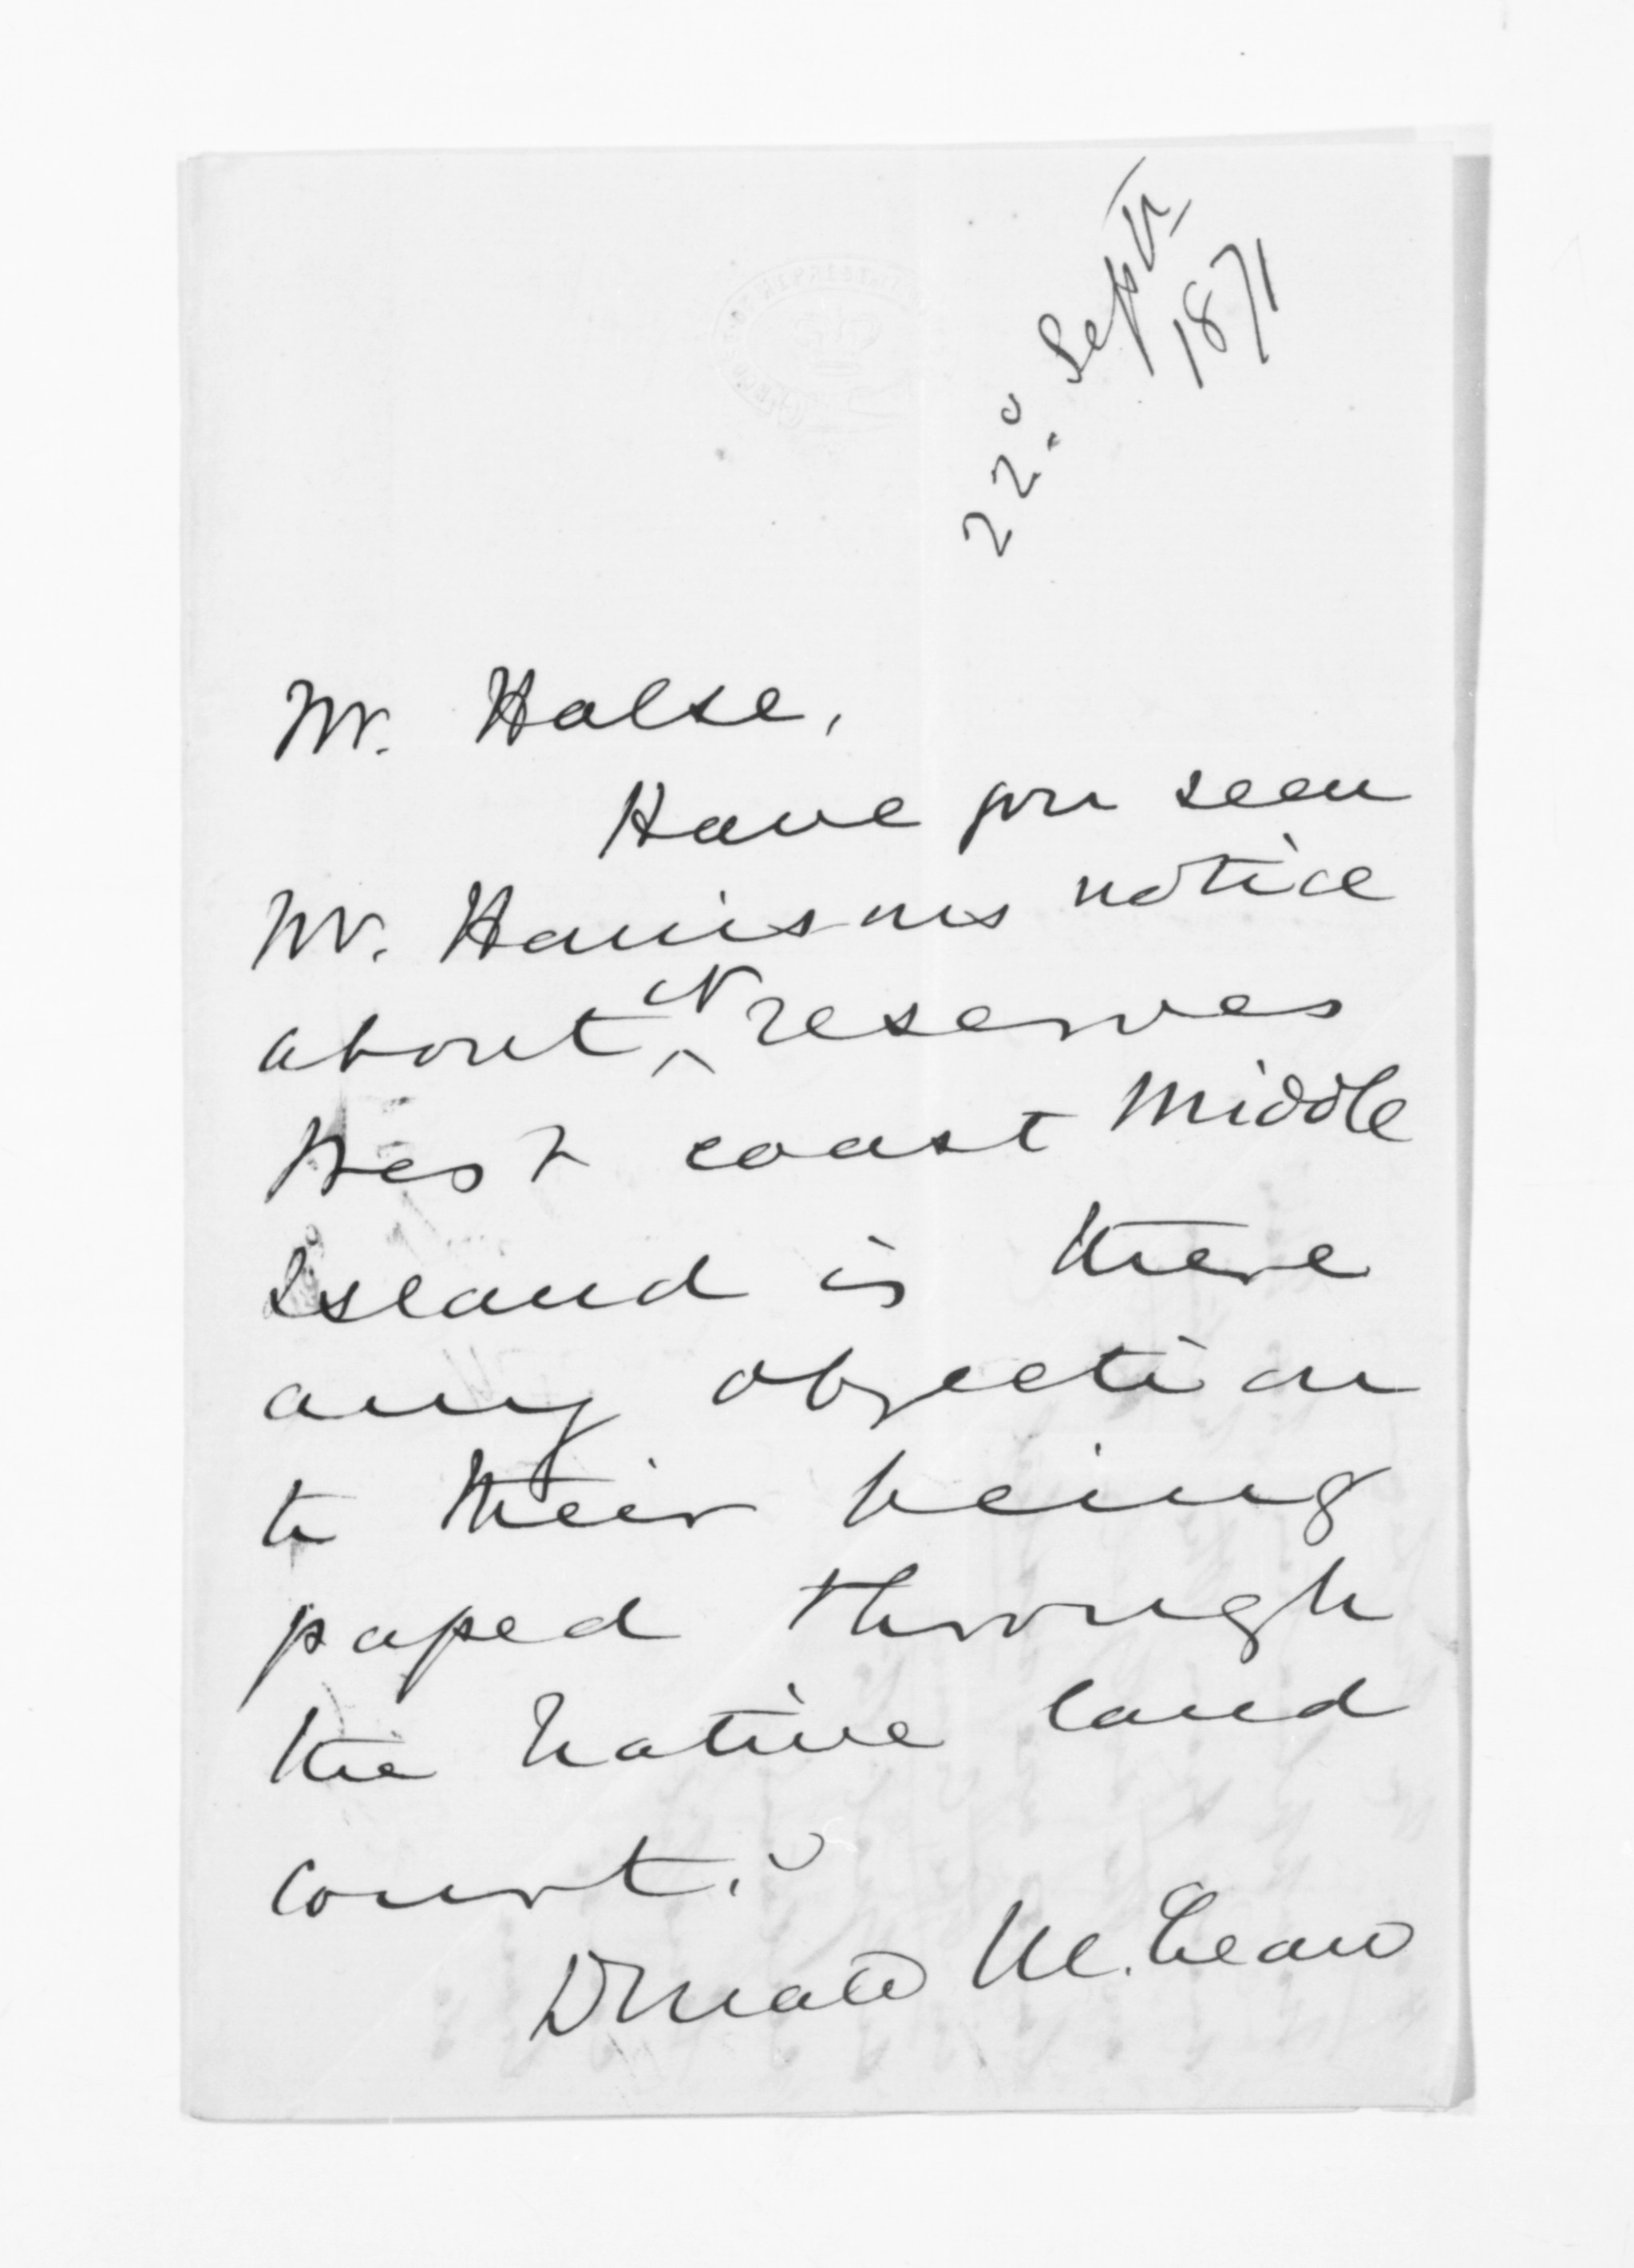 22d Septr
1871
Mr. Halse,
Have you seen
Mr. Harrisons notice
about N reserves
West coast Middle
Island is there
any objection
to their being
passed through
the Native land
court.
Donald McLean